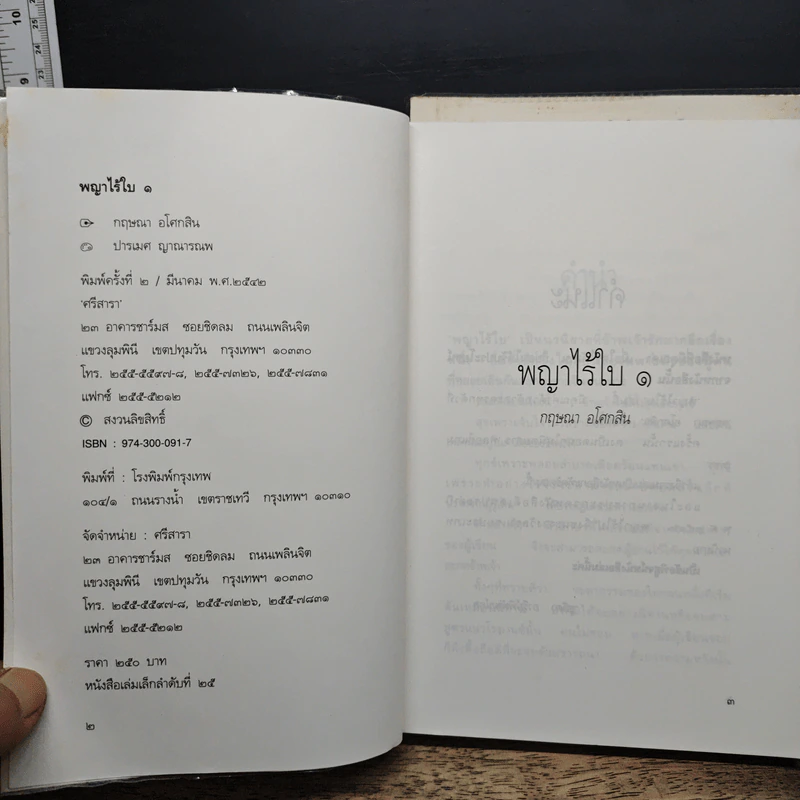 พญาไร้ใบ ๑
กฤษณา อโศกสิน
ปารเมศ ญาณารณพ
พิมพ์ครั้งที่ ๒ / มีนาคม พ.ศ.๒๕๔๒
'ศรีสารา'
๒๓ อาคารชาร์มส ซอยชิดลม ถนนเพลินจิต
แขวงลุมพินี เขตปทุมวัน กรุงเทพฯ ๑๐๓๓๐
โทร. ๒๕๕-๕๕๙๗-๘, ๒๕๕-๗๓๒๖, ๒๕๕-๗๘๓๑
แฟกซ์ ๒๕๕-๕๒๑๒
© สงวนลิขสิทธิ์
ISBN : 974-300-091-7
พิมพ์ที่ : โรงพิมพ์กรุงเทพ
๑๐๔/๑ ถนนรางน้ำ เขตราชเทวี กรุงเทพฯ ๑๐๓๑๐
จัดจำหน่าย : ศรีสารา
๒๓ อาคารชาร์มส ซอยชิดลม ถนนเพลินจิต
แขวงลุมพินี เขตปทุมวัน กรุงเทพฯ ๑๐๓๓๐
โทร. ๒๕๕-๕๕๙๗-๘, ๒๕๕-๗๓๒๖, ๒๕๕-๗๘๓๑
แฟกซ์ ๒๕๕-๕๒๑๒
ราคา ๒๕๐ บาท
หนังสือเล่มเล็กลำดับที่ ๒๕
๒
พญาไร้ใบ ๑
กฤษณา อโศกสิน
๓
10
9
25
24
23